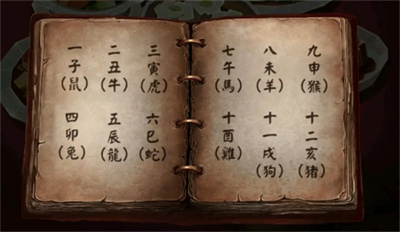 一 二 三
子 丑 寅
(鼠) (牛) (虎)
四 五 六
卯 辰 巳
(兔) (龍) (蛇)
七 八 九
午 未 申
(馬) (羊) (猴)
十 十一 十二
酉 戌 亥
(雞) (狗) (豬)